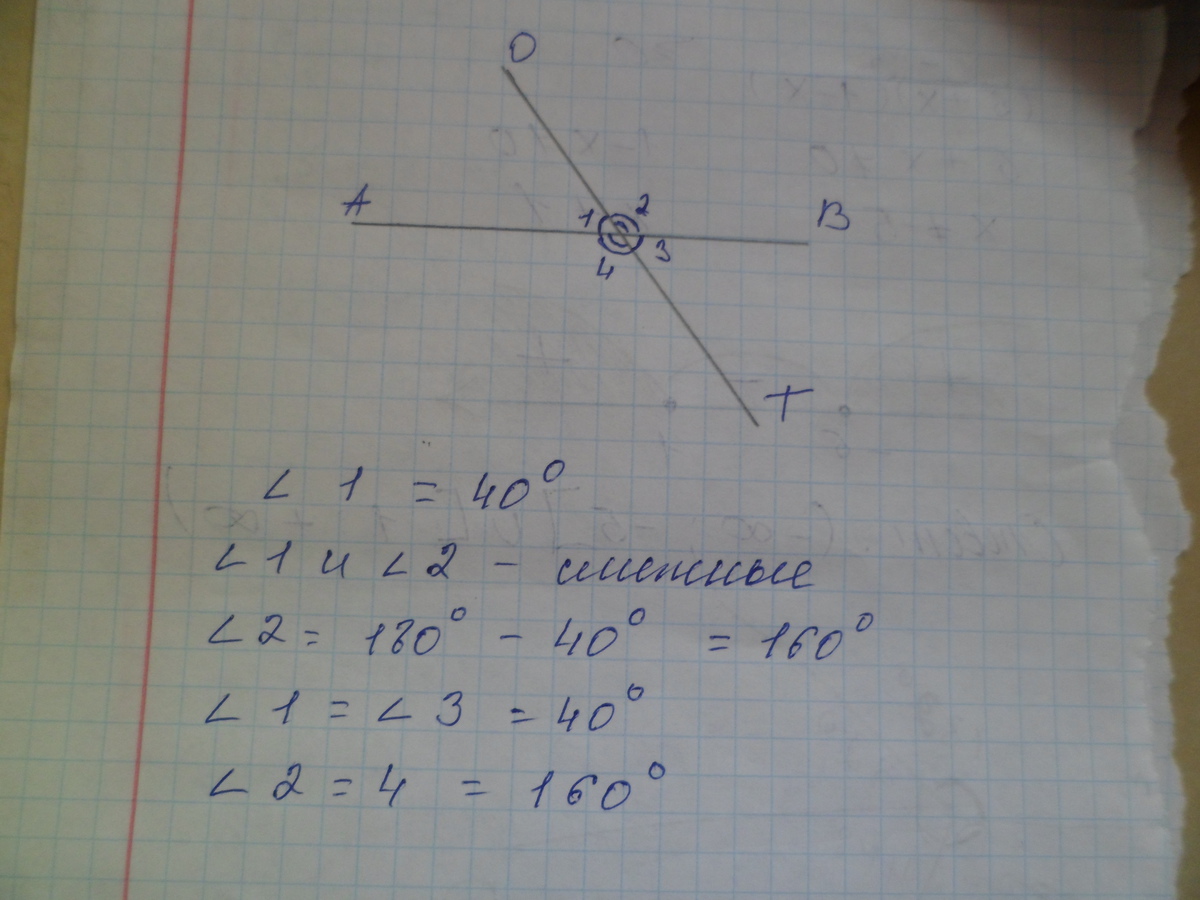 O
A
1 2
B
4 3
T
∠ 1 = 40°
∠1 и ∠2 - смежные
∠2 = 180° - 40° = 160°
∠ 1 = ∠ 3 = 40°
∠ 2 = 4 = 160°